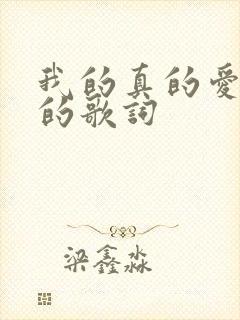 我的真的愛
的歌詞
梁鑫淼